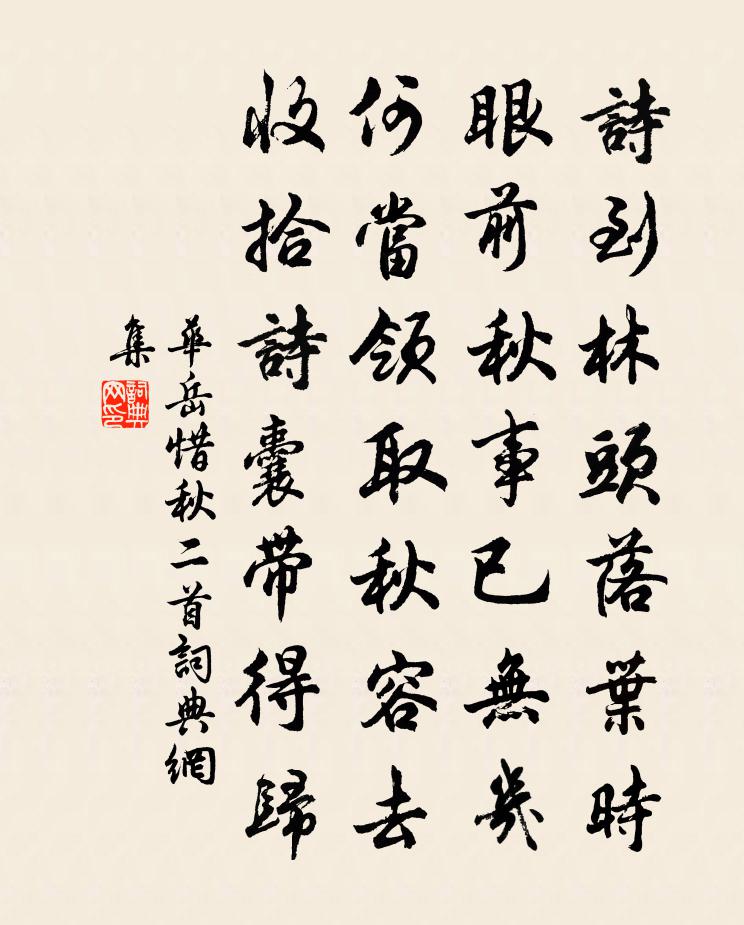 詩到林頭落葉時
眼前秋事已無幾
何當領取秋容去
收拾詩囊帶得歸
華岳惜秋二首詞典網
集
詞典
网印